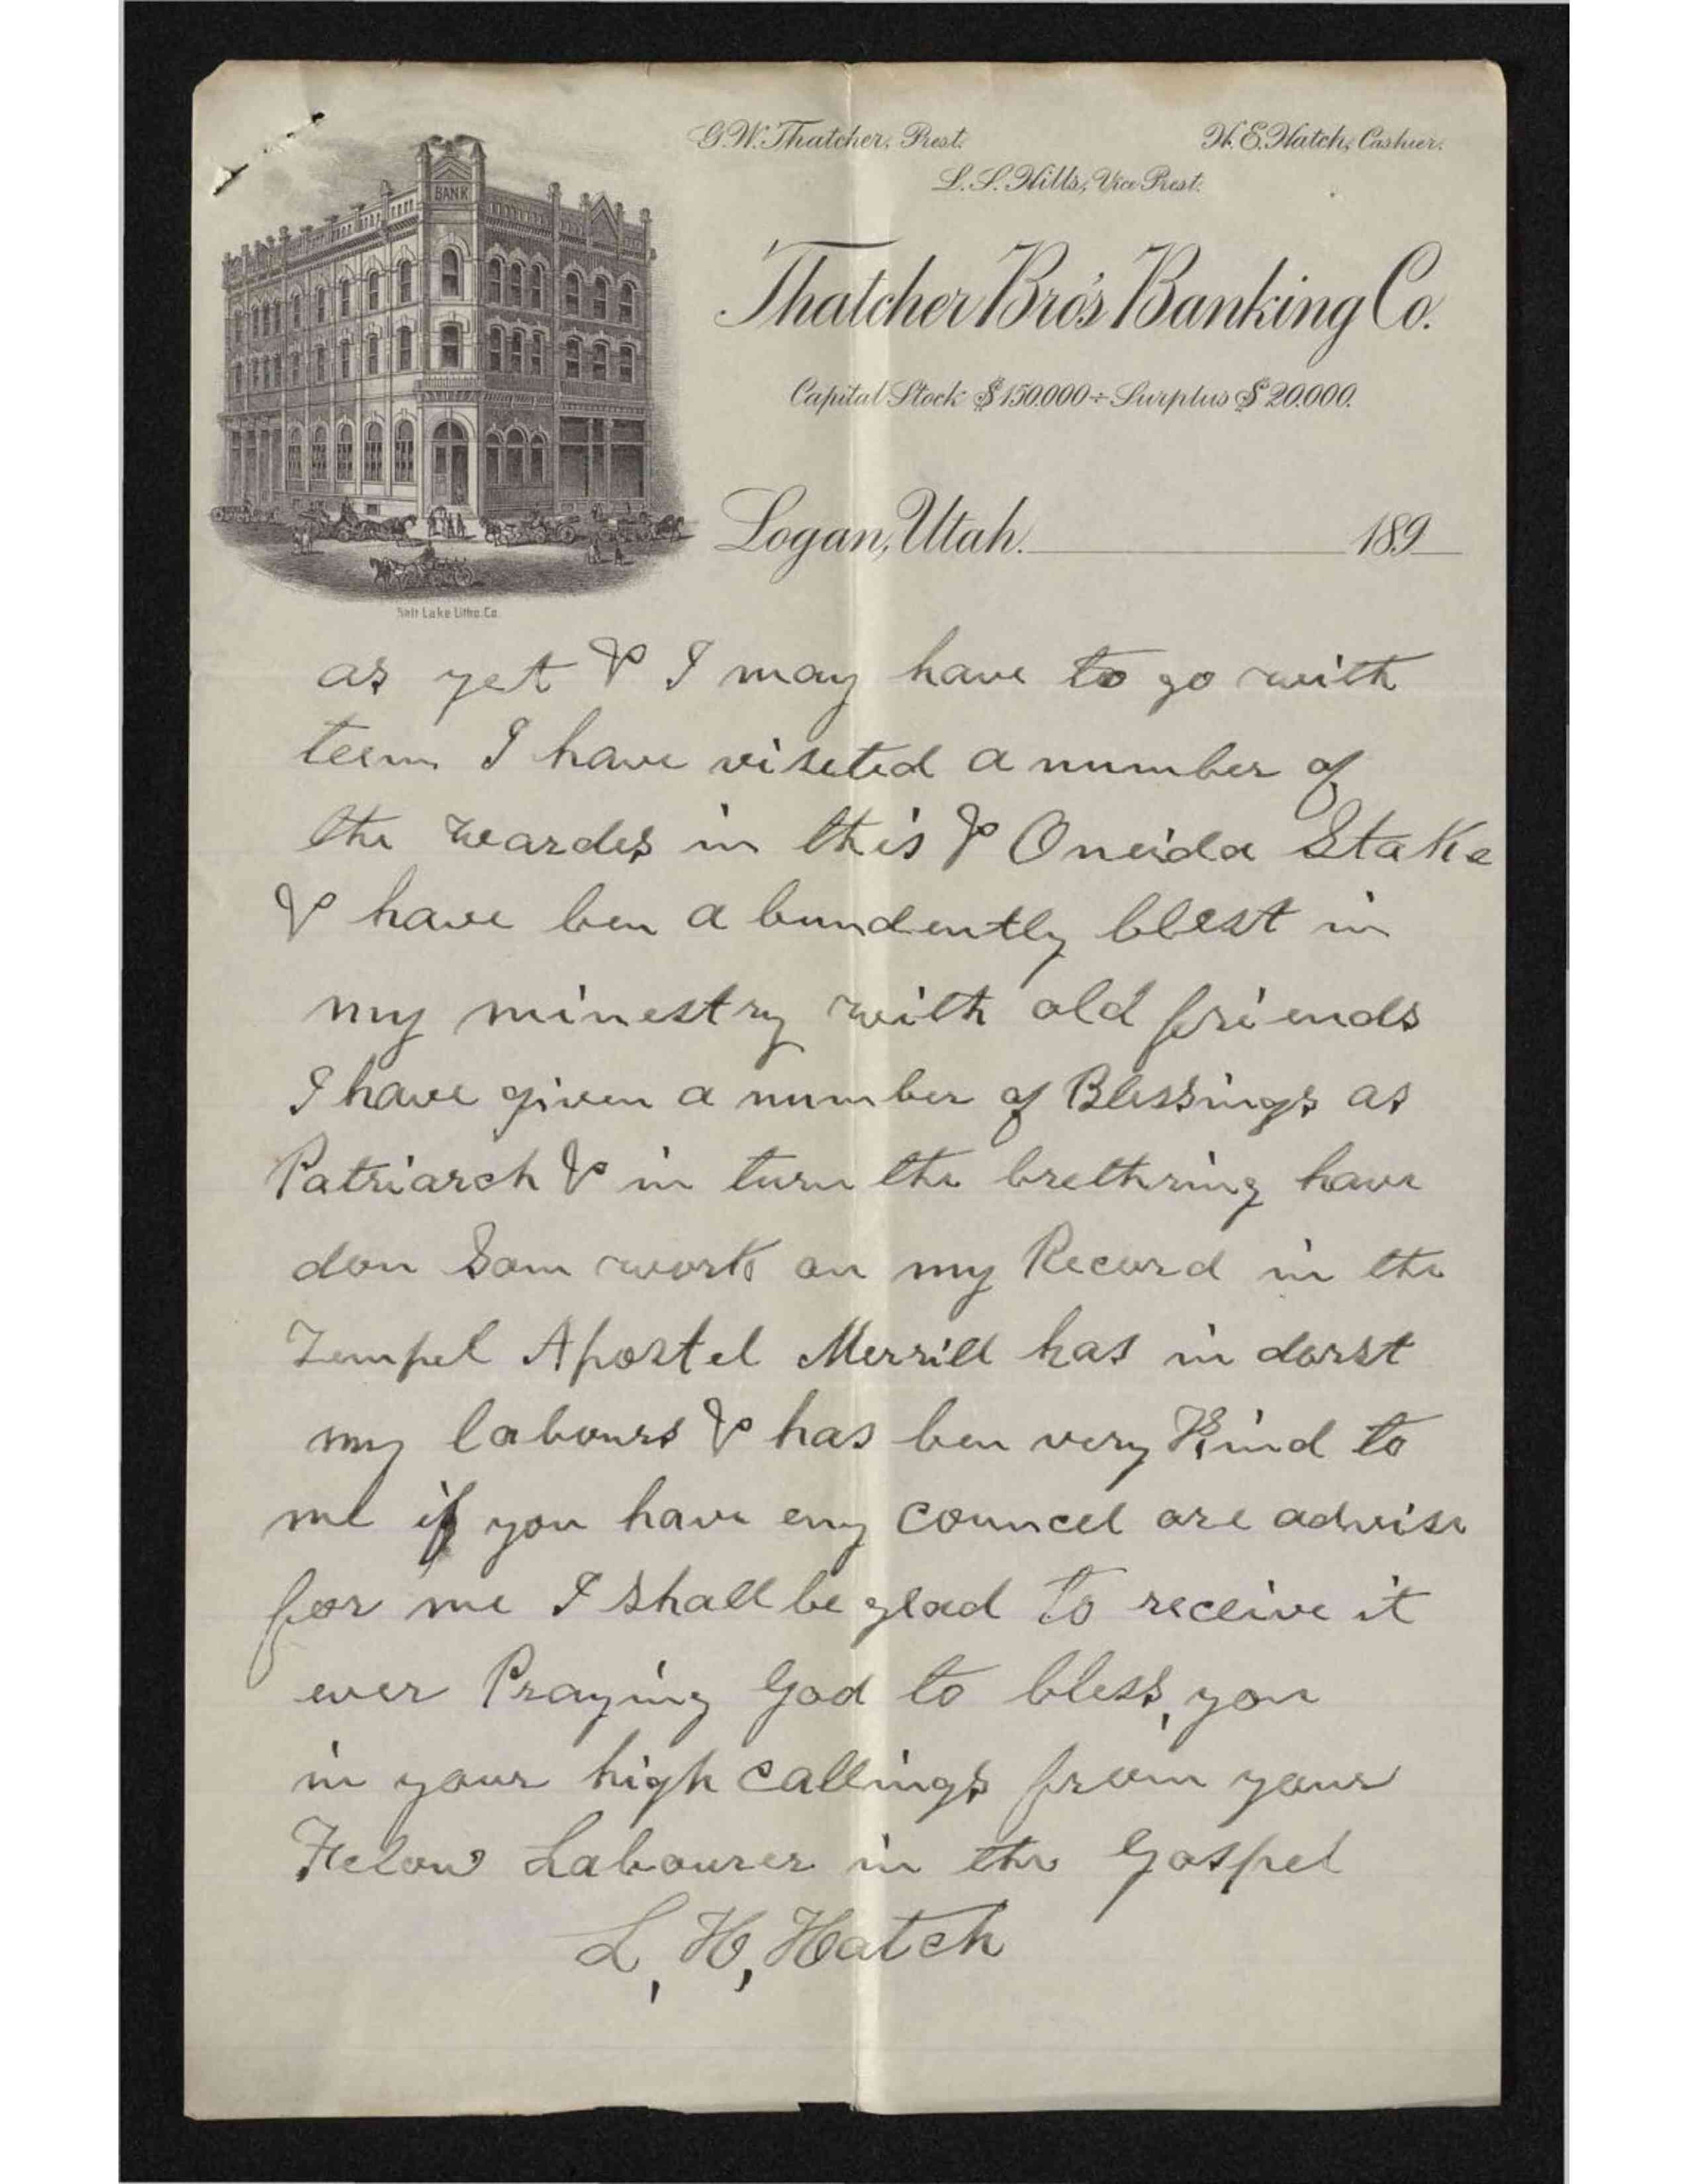 BANK
G.W. Thatcher, Prest.
H.E. Hatch, Cashier.
L.S. Hills, Vice Prest.
Thatcher Bro's Banking Co.
Capital Stock $150.000 ÷ Surplus $20.000.
Logan, Utah. 189
Salt Lake Litho. Co.
as yet & I may have to go with
teem I have viseted a number of
the wardes in this & Oneida Stake
& have ben a bundently blest in
my minestry with old friends
I have given a number of Blessings as
Patriarch & in turn the brethring have
don Som work on my Record in the
Tempel Apostel Merrill has in dorst
my labours & has ben very Kind to
me if you have eny councel are advise
for me I shall be glad to receive it
ever Praying God to bless, you
in your high callings from your
Felow Labourer in the Gospel
L, H, Hatch